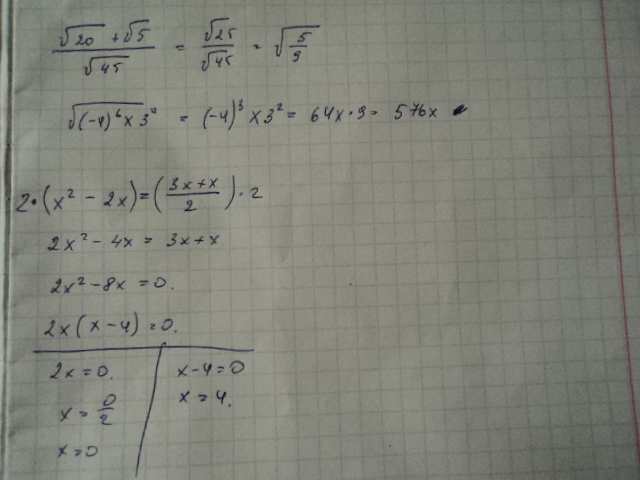 (√20 + √5)/√45 = √25/√45 = √(5/9)
√((-4)⁶ x 3⁴) = (-4)³ x 3² = 64x · 9 = 576x
2 · (x² - 2x) = ((3x + x)/2) · 2
2x² - 4x = 3x + x
2x² - 8x = 0.
2x(x - 4) = 0.
2x = 0. | x - 4 = 0
x = 0/2 | x = 4.
x = 0